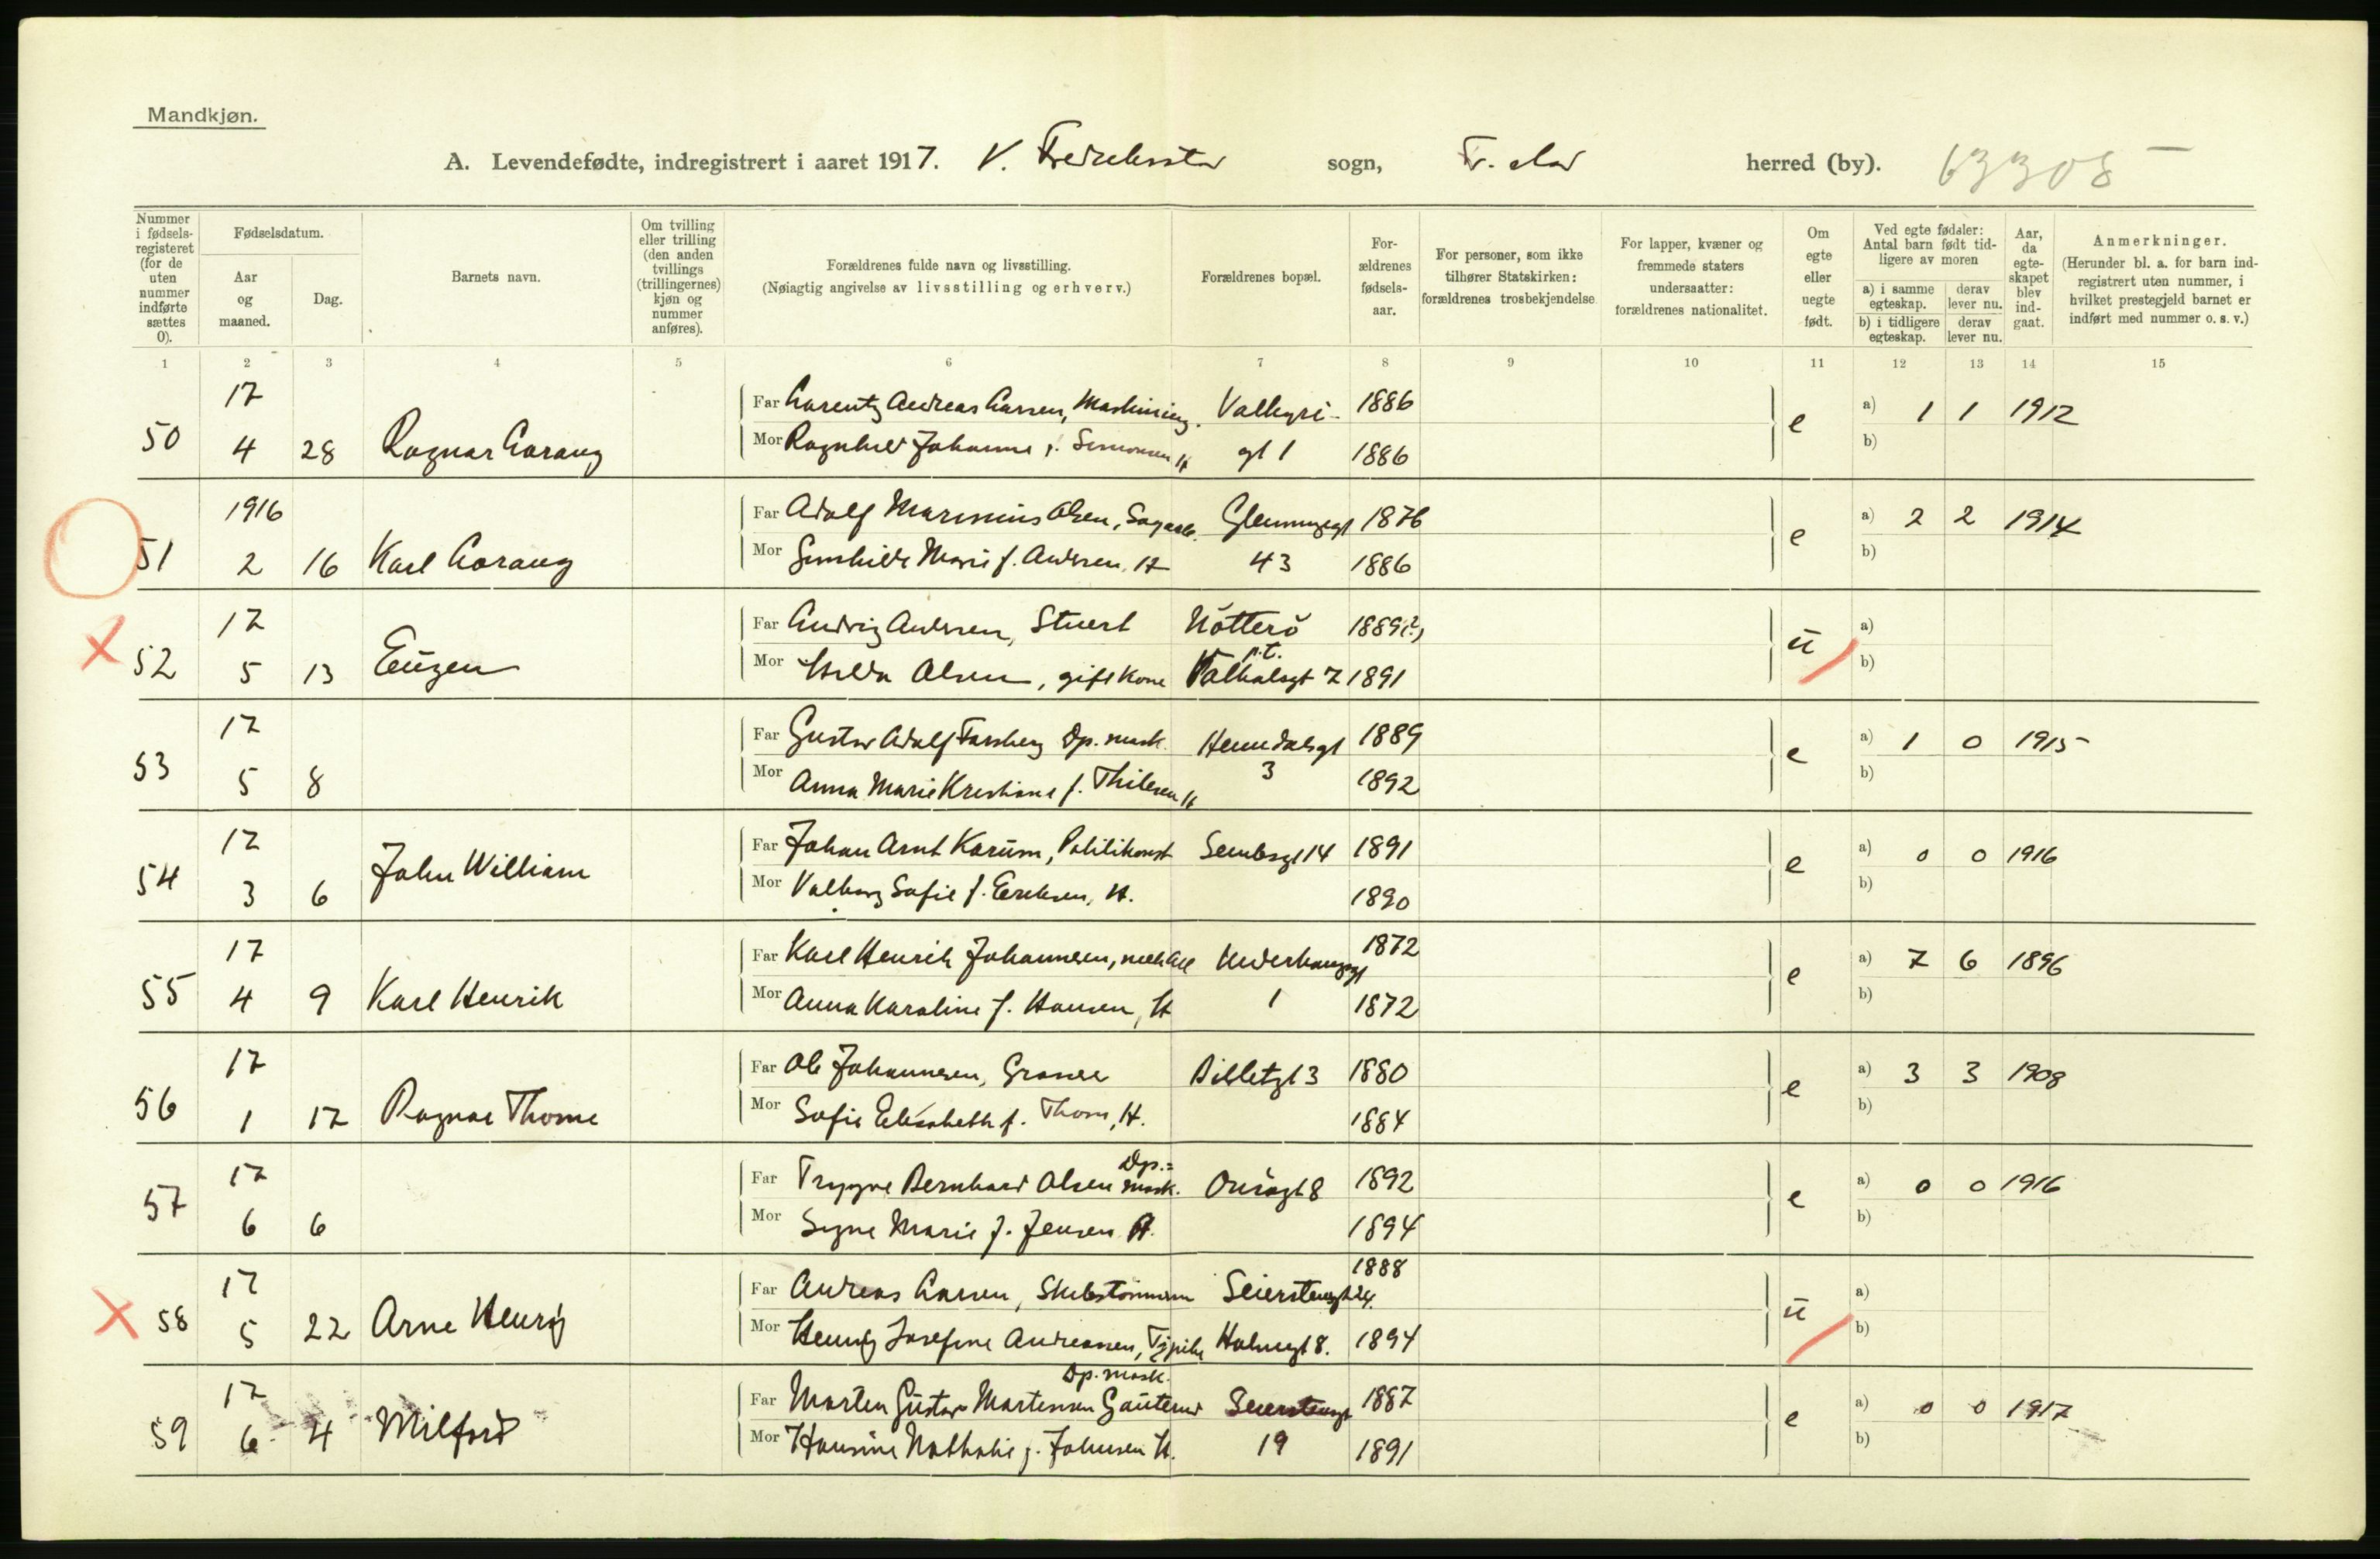 Mandkjøn.
A. Levendefødte, indregistrert i aaret 1917. V. Fredrikstad sogn, Fr. stad herred (by). 63305
Nummer i fødsels-registeret (for de uten nummer indførte sættes 0).
Fødselsdatum.
Aar og maaned.
Dag.
Barnets navn.
Om tvilling eller trilling (den anden tvillings (trillingernes) kjøn og nummer anføres).
Forældrenes fulde navn og livsstilling.
(Nøiagtig angivelse av livsstilling og erhverv.)
Forældrenes bopæl.
For-ældrenes fødsels-aar.
For personer, som ikke tilhører Statskirken: forældrenes trosbekjendelse
For lapper, kvæner og fremmede staters undersaatter: forældrenes nationalitet.
Om egte eller uegte født.
Ved egte fødsler: Antal barn født tid-ligere av moren
a) i samme egteskap.
derav lever nu.
b) i tidligere egteskap.
derav lever nu.
Aar, da egte-skapet blev ind-gaat.
Anmerkninger.
(Herunder bl. a. for barn ind-registrert uten nummer, i hvilket prestegjeld barnet er indført med nummer o. s. v.)
1 2 3 4 5 6 7 8 9 10 11 12 13 14 15
17 Far Larentz Andreas Larsen, 1886 a) 1 1 1912
50 4 28 Ragnar Larang Mor Ragnhild Johanne f. Simonsen H gt 1 1886 e b)
1916 Far Adolf Marinius Olsen, Sagarb. Glemmegt 1876 a) 2 2 1914
51 2 16 Karl Larang Mor Gunhilde Marie f. Andersen, H 43 1886 e b)
17 Far Ludvig Andersen, Stuert Nötterö 1889(?) a)
52 5 13 Eugen Mor Hilda Olsen, gift kone p.t. Valhalsgt 7 1891 u b)
17 Far Gustav Adolf Forsberg Dp. mask. 1889 a) 1 0 1915
53 5 8 Mor Anna Marie Kristiane f. Thilesen H 3 1892 e b)
17 Far Johan Arnt Karum, Politikonst 14 1891 a) 0 0 1916
54 3 6 John William Mor Valborg Sofie f. Eriksen, H. 1890 e b)
17 Far Karl Henrik Johannesen, 1872 a) 7 6 1896
55 4 9 Karl Henrik Mor Anna Karoline f. Hansen, H 1 1872 e b)
17 Far Ole Johannesen, 3 1880 a) 3 3 1908
56 1 17 Ragnar Thome Mor Sofie Elisabeth f. Thom, H. 1884 e b)
17 Far Trygve Bernhard Olsen Dp.= mask. Onsögt 8 1892 a) 0 0 1916
57 6 6 Mor Signe Marie f. Jensen H. 1894 e b)
17 Far Andreas Larsen, Seierstengt 24. 1888 a)
58 5 22 Arne Henry Mor Henny Josefine Andreassen, Holmegt 8. 1894 u b)
17 Far Marten Gustav Martinson Dp. mask. Seierstensgt 1887 a) 0 0 1917
59 6 4 Milford Mor Hansine Nathalie f. Johnsen H. 19 1891 e b)